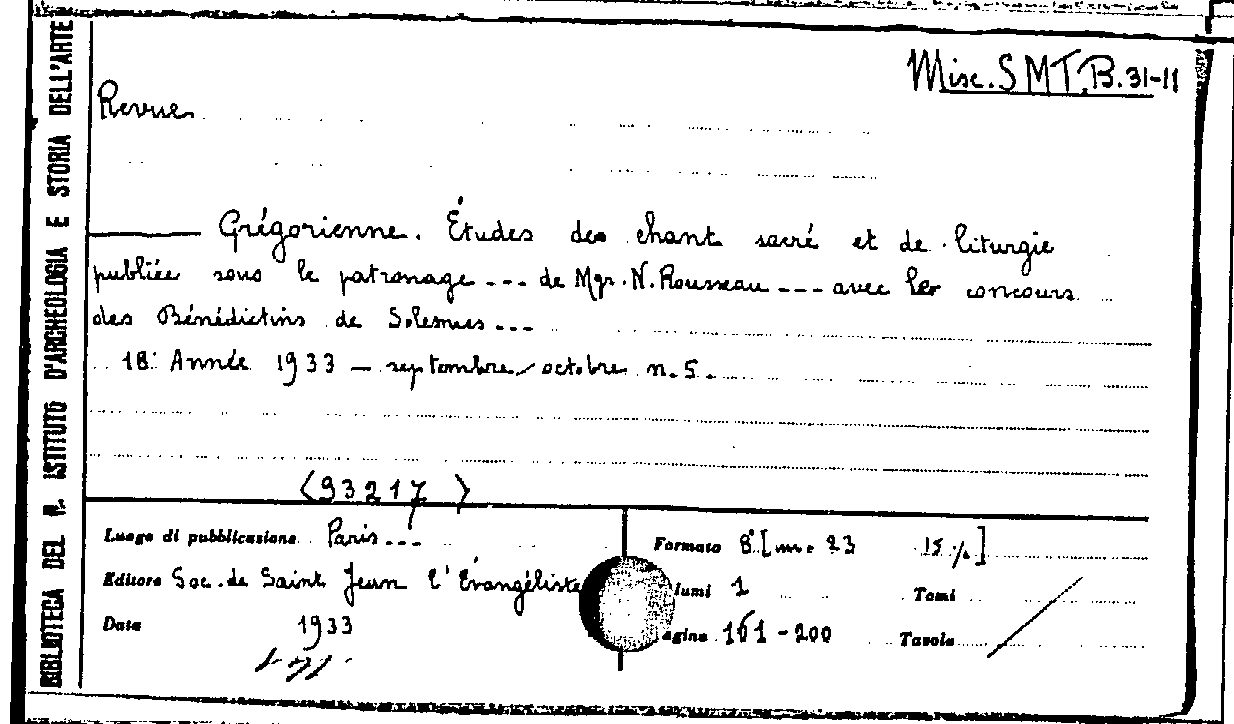 BIBLIOTECA DEL R. ISTITUTO D'ARCHEOLOGIA E STORIA DELL'ARTE
Misc. SMT. B. 31-11
Revue
Grégorienne. Études de chant sacré et de liturgie
publiée sous le patronage --- de Mgr. N. Rousseau --- avec le concours
des Bénédictins de Solesmes ---
18. Année 1933 - septembre/octobre n. 5.
<93217>
Luogo di pubblicazione Paris ---
Formato 8° [
23 15
]
Editore Soc. de Saint Jean l'Évangéliste
lumi 1 Tomi
Data 1933
agine 161-200 Tavole